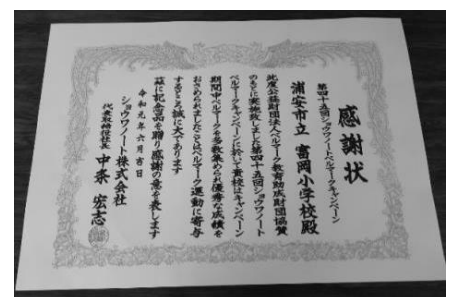 感謝状
第四十五回ショウワノートベルマークキャンペーン
浦安市立 富岡小学校殿
此度公益財団法人ベルマーク教育助成財団協賛
のもとに実施致しました第四十五回ショウワノート
ベルマークキャンペーンに於いて貴校はキャンペーン
期間中ベルマークを多数集められ優秀な成績を
おさめられましたことはベルマーク運動に寄与
するところ誠に大であります
茲に記念品を贈り感謝の意を表します
令和元年六月吉日
ショウワノート株式会社
代表取締役社長 中条 宏志